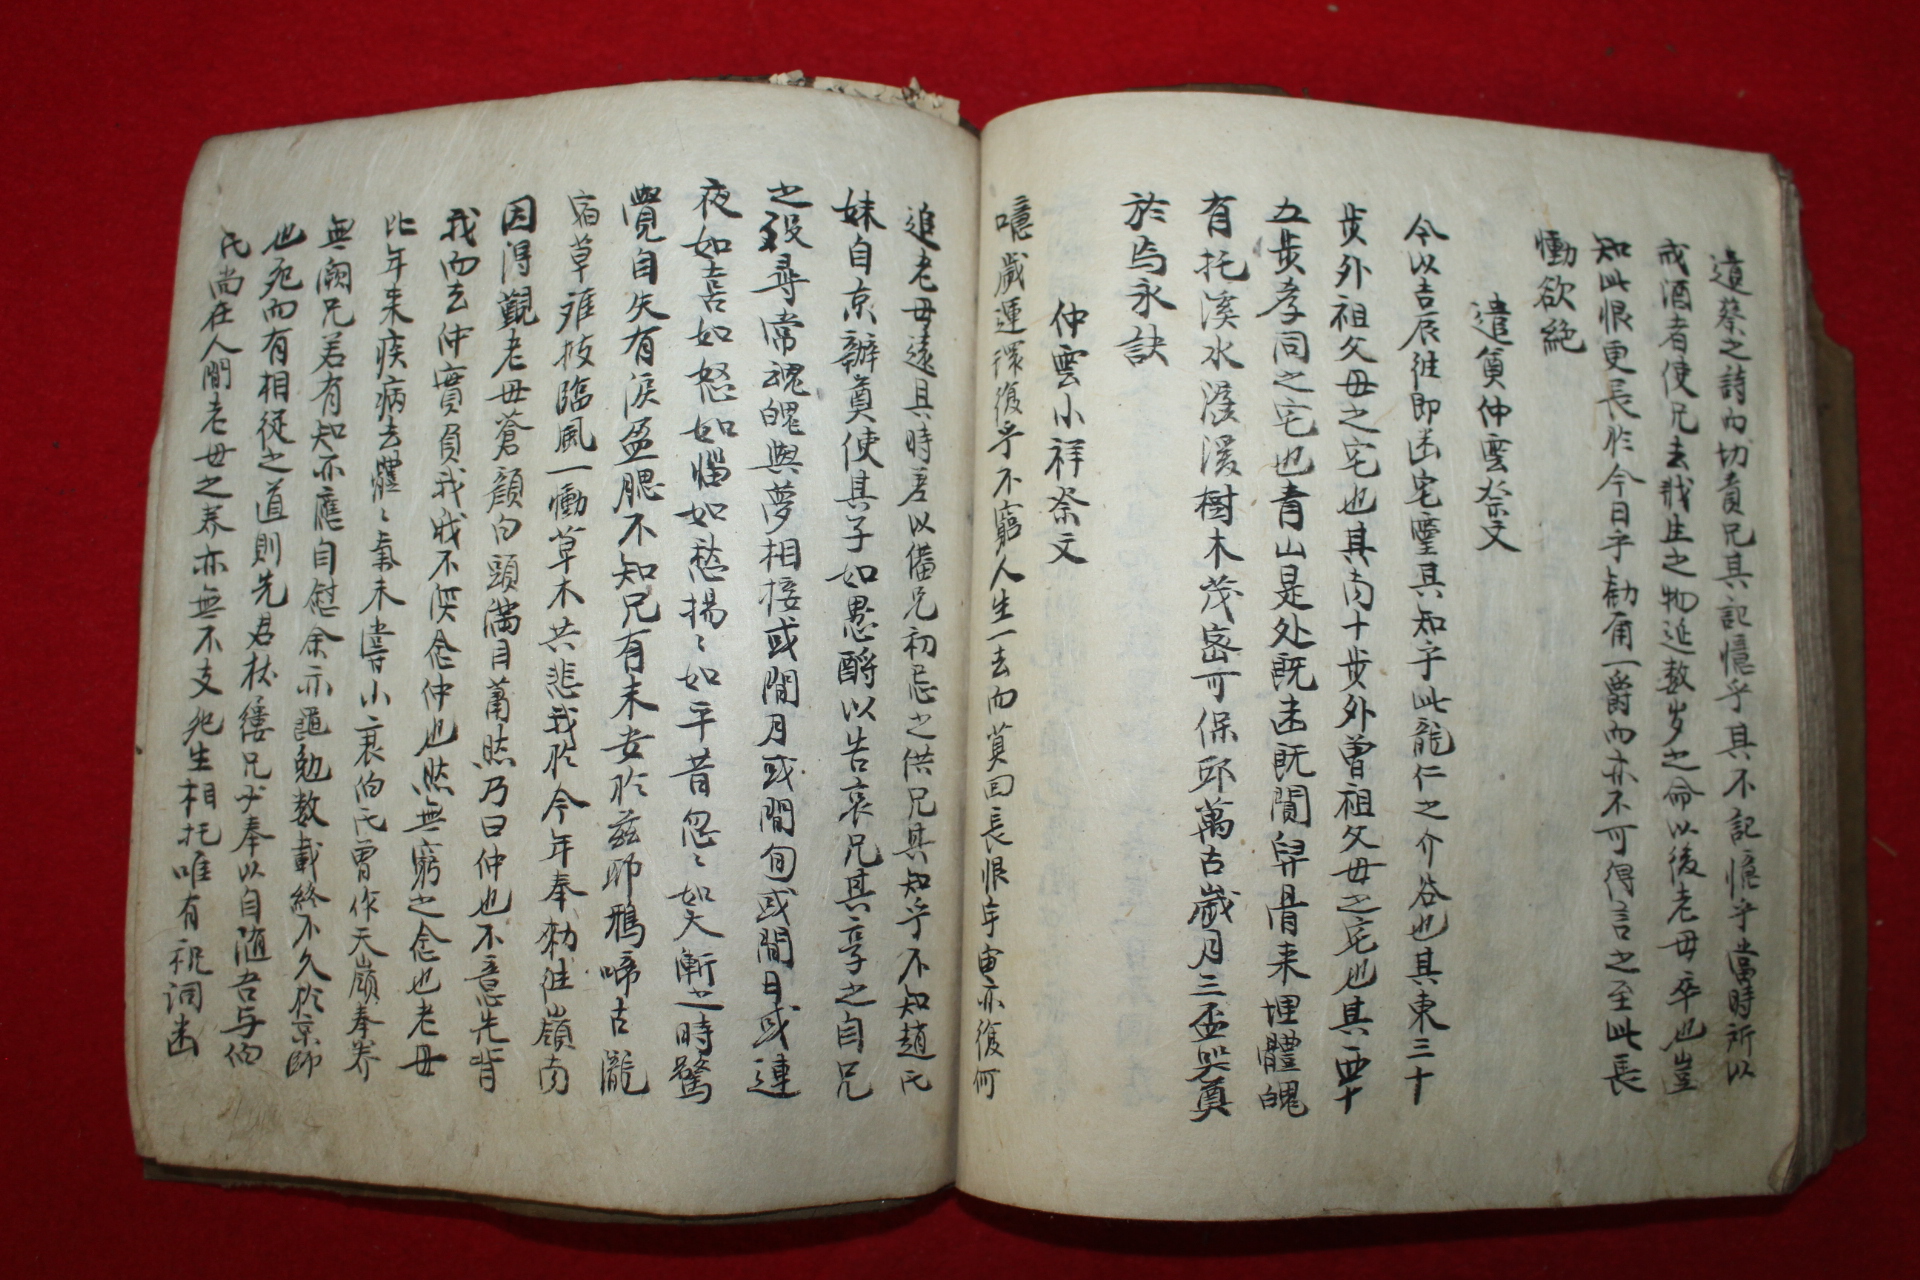 遺蔡之詩向切責兄其記憶乎其不記憶乎當時所以
戒酒者使兄去戕生之物延数岁之命以後老母卒也豈
知此恨更長於今日乎勸甭一爵而亦不可得言之至此長
慟欲絶
遣奠仲雲祭文
今以吉辰徃即幽宅靈其知乎此龍仁之介谷也其東三十
步外祖父母之宅也其南十步外曾祖父母之宅也其西十
五步孝同之宅也青山是处既幽既閴舁骨来埋體魄
有托溪水濚湲樹木茂密可保邱萬古歲月三盃哭奠
於焉永訣
仲雲小祥祭文
噫歲運環復乎不窮人生一去而莫回長恨年寅亦復何
追老母遠具時羞以備兄初忌之供兄其知乎不知趙氏
妹自京辦奠使其子如愚酹以告哀兄其享之自兄
之歿尋常魂魄與夢相接或間月或間旬或間日或連
夜如喜如怒如惱如愁揚〻如平昔忽〻如大漸之時驚
覺自失有淚盈腮不知兄有未安於兹耶鴉啼古隴
宿草难拔臨風一慟草木共悲我於今年奉勑徃嶺南
因得覲老母蒼顔白頭滿目蕭然乃曰仲也不意先背
我而去仲實負我我不復念仲也然無窮之念也老母
比年来疾病去體〻氣未嘗小衰伯氏曾作天嶺奉养
無闕兄若有知亦應自慰余亦黽勉数載終不久於京師
也死而有相從之道則先君杖屨兄必奉以自随吾与伯
氏尚在人間老母之养亦無不支死生相托唯有祝詞幽